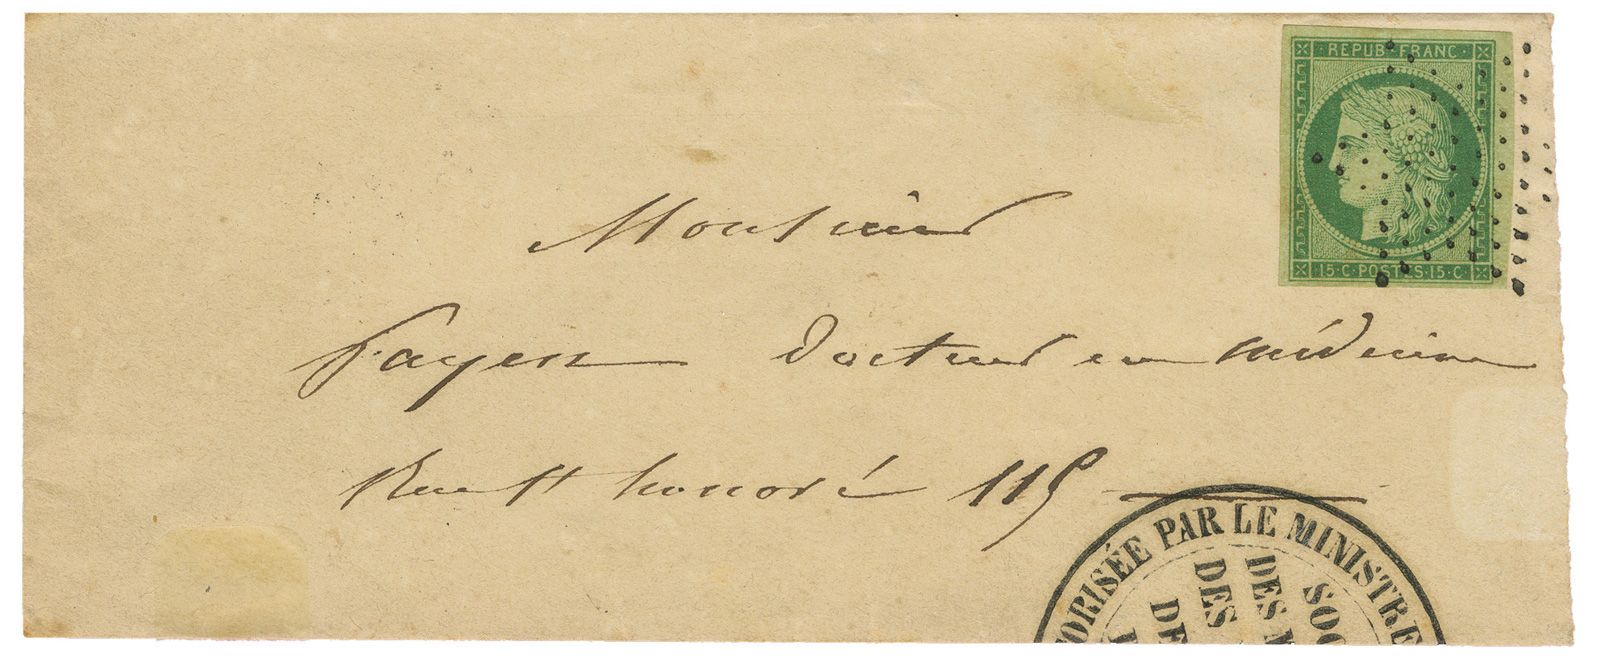 REPUB·FRANC·
15·C·POSTES·15·C
Monsieur
Fayen Docteur en médecine
Rue St honoré 115
ORISÉE PAR LE MINISTRE
SOC
DES M
DES
DE